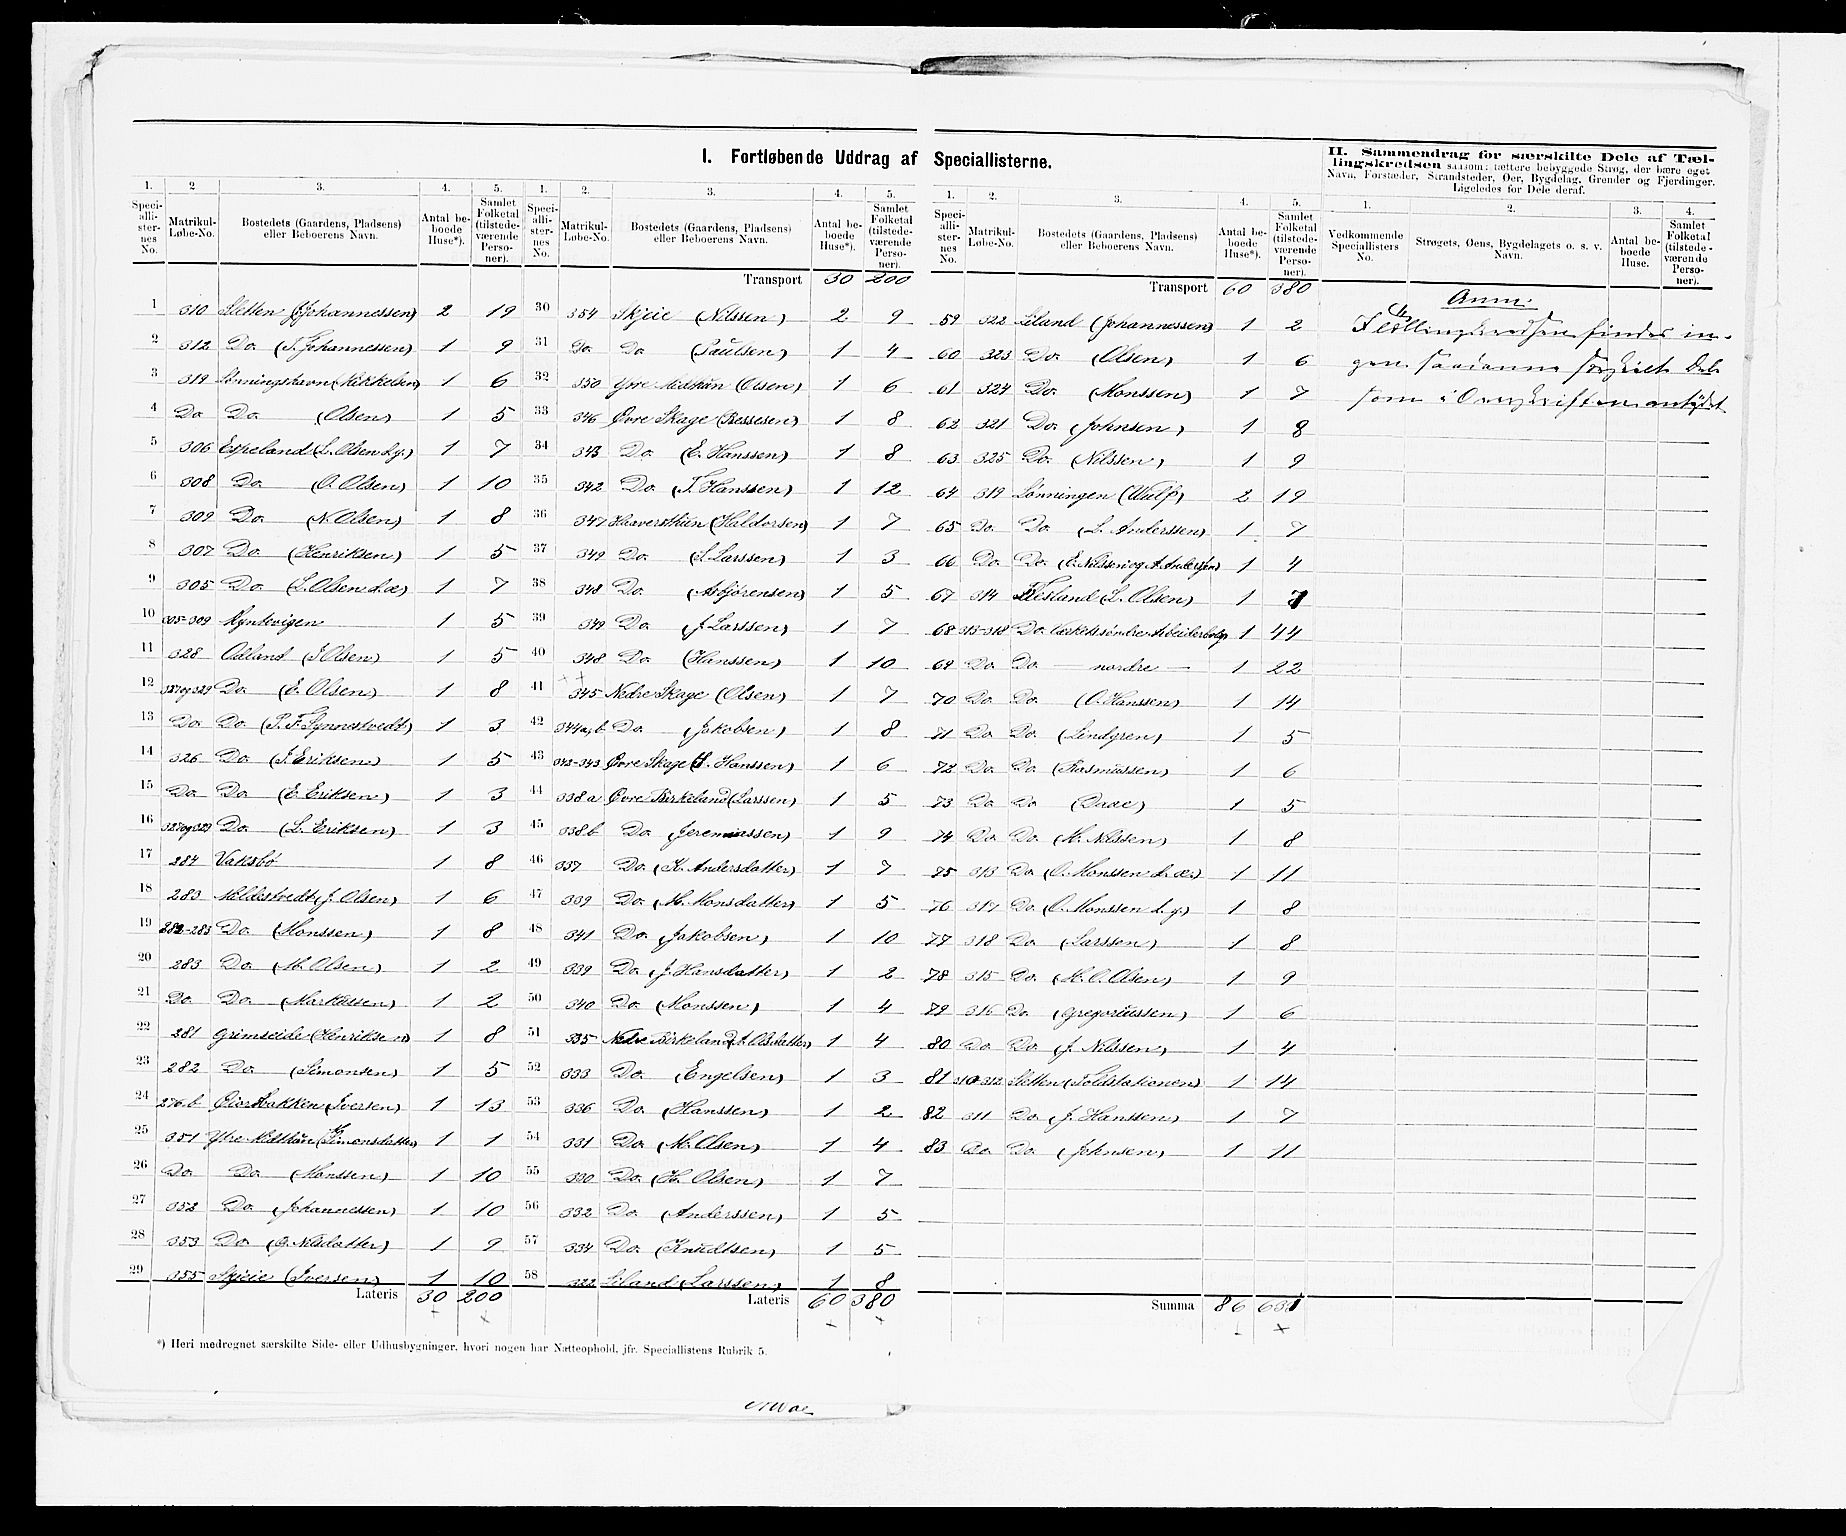 I. Fortløbende Uddrag af Speciallisterne.
II. Sammendrag for særskilte Dele af Tæl-
lingskredsen saasom: tættere bebyggede Strøg, der bære eget
Navn, Forstæder, Strandsteder, Øer, Bygdelag, Grender og Fjerdinger.
Ligeledes for Dele deraf.
1. 2 3. 4. 5. 1. 2. 3. 4. 5. 1. 2. 3. 4. 5. 1. 2. 3. 4.
Speci-alli-ster-nes No. Matrikul-Løbe-No. Bostedets (Gaardens, Pladsens) eller Beboerens Navn. Antal be-boede Huse*). Samlet Folketal (tilstede-værende Perso-ner).
Speci-alli-ster-nes No. Matrikul-Løbe-No. Bostedets (Gaardens, Pladsens) eller Beboerens Navn. Antal be-boede Huse*). Samlet Folketal (tilstede-værende Perso-ner).
Speci-alli-ster-nes No. Matrikul-Løbe-No. Bostedets (Gaardens, Pladsens) eller Beboerens Navn. Antal be-boede Huse*). Samlet Folketal (tilstede-værende Perso-ner).
Vedkommende Speciallisters No. Strøgets, Øens, Bygdelagets o. s. v. Navn. Antal be-boede Huse. Samlet Folketal (tilstede-værende Perso-ner).
1 310 Sletten (J. Johannessen) 2 19
2 312 Do (T. Johannessen) 1 9
3 319 Lønningshavn (Mikkelsen) 1 6
4 Do Do (Olsen) 1 5
5 306 Espeland (L. Olsen d.y.) 1 7
6 308 Do (O. Olsen) 1 10
7 309 Do (N. Olsen) 1 8
8 307 Do (Henriksen) 1 5
9 305 Do (L. Olsen d.æ) 1 7
10 305-309 1 5
11 328 Odland (J Olsen) 1 5
12 327og329 Do (E. Olsen) 1 8
13 Do Do (P. F. Synnestvedt) 1 3
14 326 Do (J. Eriksen) 1 5
15 Do Do (E. Eriksen) 1 3
16 327og329 Do (L. Eriksen) 1 3
17 284 Vaksbø 1 8
18 283 Mildestvedt (J. Olsen) 1 6
19 282-283 Do (Monssen) 1 8
20 283 Do (M. Olsen) 1 2
21 Do Do (Markussen) 1 2
22 281 Grimseide (Henriksen) 1 8
23 282 Do (Simonsen) 1 5
24 276.b (Iversen) 1 13
25 351 Ytre Midthun (Simonsdatter) 1 1
26 Do Do (Monssen) 1 10
27 352 Do (Johannessen) 1 10
28 353 Do (G. Nilsdatter) 1 9
29 355 Skjeie (Iversen) 1 10
Lateris 30 200
Transport 30 200
30 354 Skjeie (Nilssen) 2 9
31 Do Do (Paulsen) 1 4
32 350 Midthun (Olsen) 1 6
33 346 Øvre Skage (Bessesen) 1 8
34 343 Do (E. Hanssen) 1 8
35 342 Do (T. Hanssen) 1 12
36 347 Haversthun (Haldorsen) 1 7
37 349 Do (S Larssen) 1 3
38 348 Do (Asbjørensen) 1 5
39 349 Do (J Larssen) 1 7
40 348 Do (Hanssen) 1 10
41 345 Nedre Skage (Olsen) 1 7
42 344a,b Do (Jakobsen) 1 8
43 342-343 Øvre Skage (S. Hanssen) 1 6
44 338a Øvre Birkeland (Larssen) 1 5
45 338b Do (Jeremiassen) 1 9
46 337 Do (K. Andersdatter) 1 7
47 339 Do (M. Monsdatter) 1 5
48 341 Do (Jakobsen) 1 10
49 339 Do (J. Hansdatter) 1 2
50 340 Do (Monssen) 1 4
51 335 Nedre Birkeland (A Olsdatter) 1 4
52 333 Do (Engelsen) 1 3
53 336 Do (Hanssen) 1 2
54 331 Do (M. Olsen) 1 4
55 330 Do (H. Olsen) 1 7
56 332 Do (Anderssen) 1 5
57 334 Do (Knudtsen) 1 5
58 322 Liland (Larssen) 1 8
Lateris 60 380
Transport 60 380
59 322 Liland (Johannessen) 1 2
60 323 Do (Olsen) 1 6
61 324 Do (Monssen) 1 7
62 321 Do (Johnsen) 1 8
63 325 Do (Nilssen) 1 9
64 319 Lønningen (Wulf) 2 19
65 Do Do (L. Anderssen) 1 7
66 Do Do (E. Nilssen og A. Andersen) 1 4
67 314 Flesland (L. Olsen) 1 7
68 313-318 Do Værkets søndre Arbeiderbolig 1 44
69 Do Do nordre 1 22
70 Do Do (O. Hanssen) 1 14
71 Do Do (Lindgren) 1 5
72 Do Do (Rasmussen) 1 6
73 Do Do (Daae) 1 5
74 Do Do (H. Nilssen) 1 8
75 313 Do (O. Monssen d.æ.) 1 11
76 317 Do (O. Monssen d.y.) 1 8
77 318 Do (Larssen) 1 8
78 315 Do (H. O. Olsen) 1 9
79 316 Do (Gregoriussen) 1 6
80 Do Do (J. Nilssen) 1 4
81 310-312 Sletten (Toldstationen) 1 14
82 311 Do (J. Hanssen) 1 7
83 Do Do (Johnsen) 1 11
Summa 86 631
Anm:
I Tællingskredsen findes in-
gen saadanne særskilt Del
som i Overskriften antydet
*) Heri medregnet særskilte Side- eller Udhusbygninger, hvori nogen har Natteophold, jfr. Speciallistens Rubrik 5.